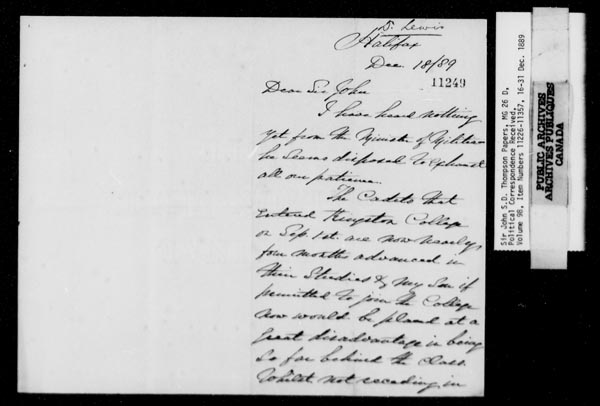 D. Lewis
Halifax
Dec 18/89
11249
Dear Sir John
I have heard nothing
yet from the Minister of Militia
he seems disposed to exhaust
all our patience.
The Cadets that
entered Kingston College
on Sep 1st are now nearly
four months advanced in
their Studies & my Son if
permitted to join the College
now would be placed at a
great disadvantage in being
so far behind the class.
Whilst not receding in
Sir John S.D. Thompson Papers, MG 26 D,
Political Correspondence Received,
Volume 98, Item Numbers 11226-11357, 16-31 Dec. 1889
PUBLIC ARCHIVES
ARCHIVES PUBLIQUES
CANADA